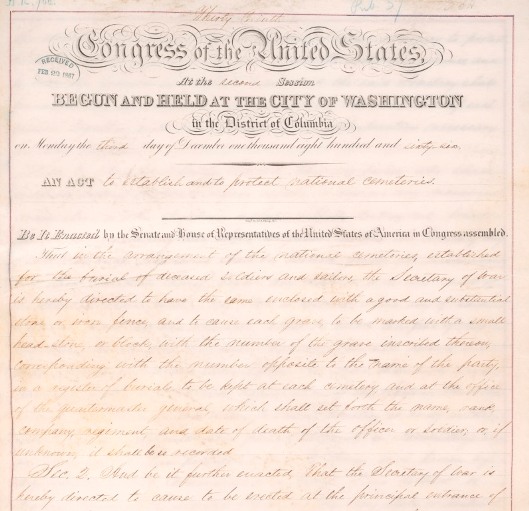 Thirty Ninth
Congress of the United States,
RECEIVED
FEB 1867
At the second Session
BEGUN AND HELD AT THE CITY OF WASHINGTON
in the District of Columbia
on Monday the third day of December one thousand eight hundred and sixty-six.
AN ACT to establish and to protect national cemeteries.
Be It Enacted by the Senate and House of Representatives of the United States of America in Congress assembled.
That in the arrangement of the national cemeteries, established
for the burial of deceased soldiers and sailors, the Secretary of war
is hereby directed to have the same enclosed with a good and substantial
stone or iron fence, and to cause each grave to be marked with a small
head-stone, or block, with the number of the grave inscribed thereon,
corresponding with the number opposite to the name of the party,
in a register of burials to be kept at each cemetery, and at the office
of the quartermaster general, which shall set forth the name, rank,
company, regiment and date of death of the officer or soldier, or, if
unknown, it shall be so recorded
Sec. 2. And be it further enacted, That the Secretary of War is
hereby directed to cause to be erected at the principal entrance of